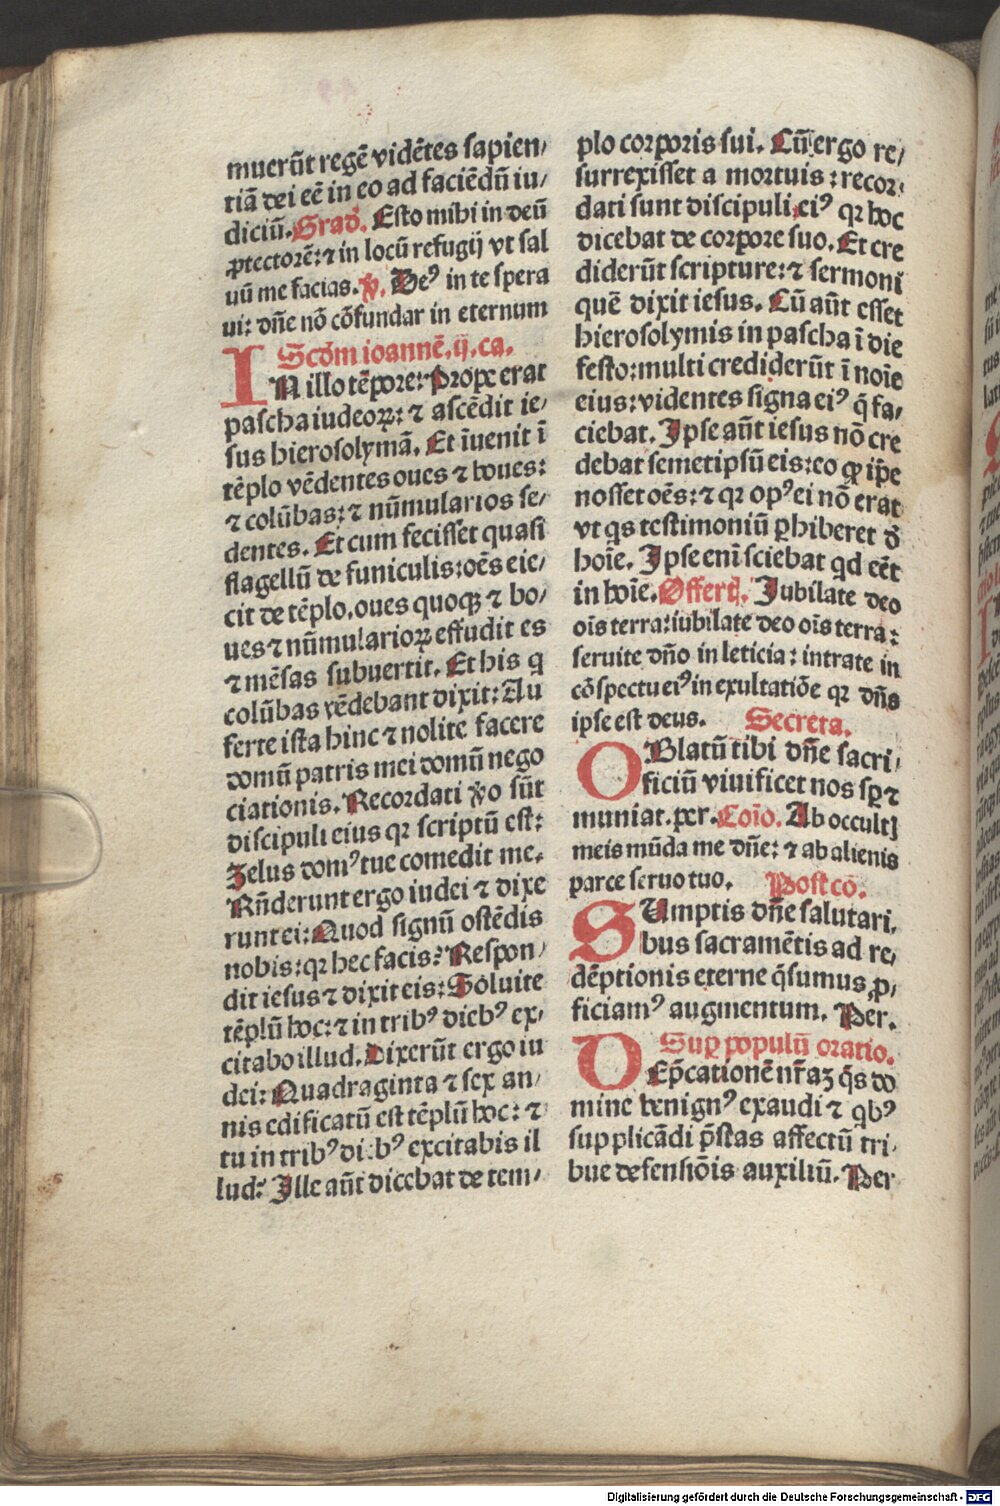 muerūt regē vidētes sapien/
tiā dei eē in eo ad faciēdū iu/
diciū. Grad̄. Esto mihi in deū
ꝓtectorē: ⁊ in locū refugij vt sal
uū me facias. ℣. Deꝰ in te spera
ui: dn̄e nō cōfundar in eternum
Scd̄m ioannē. ij. ca.
IN illo tēpore: Prope erat
pascha iudeoꝝ: ⁊ ascēdit ie/
sus hierosolymā. Et īuenit ī
tēplo vēdentes oues ⁊ boues:
⁊ colūbas: ⁊ nūmularios se/
dentes. Et cum fecisset quasi
flagellū de funiculis: oēs eie/
cit de tēplo. oues quoqꝫ ⁊ bo/
ues ⁊ nūmularioꝝ effudit es
⁊ mēsas subuertit. Et his q
colūbas vēdebant dixit: Au
ferte ista hinc ⁊ nolite facere
domū patris mei domū nego
ciationis. Recordati ꝟo sūt
discipuli eius qꝛ scriptū est:
Zelus domꝰ tue comedit me.
Rn̄derunt ergo iudei ⁊ dixe
runt ei: Quod signū ostēdis
nobis: qꝛ hec facis? Respon/
dit iesus ⁊ dixit eis: Soluite
tēplū hoc: ⁊ in tribꝰ diebꝰ ex/
citabo illud. Dixerūt ergo iu
dei: Quadraginta ⁊ sex an/
nis edificatū est tēplū hoc: ⁊
tu in tribꝰ diebꝰ excitabis il
lud? Ille aūt dicebat de tem/
plo corporis sui. Cū ergo re/
surrexisset a mortuis: recor/
dati sunt discipuli eiꝰ qꝛ hoc
dicebat de corpore suo. Et cre
diderūt scripture: ⁊ sermoni
quē dixit iesus. Cū aūt esset
hierosolymis in pascha ī die
festo: multi crediderūt ī noīe
eius: videntes signa eiꝰ q̄ fa/
ciebat. Ipse aūt iesus nō cre
debat semetipsū eis: eo ꝙ ip̄e
nosset oēs: ⁊ qꝛ opꝰ ei nō erat
vt qs testimoniū ꝑhiberet d̄
hoīe. Ipse enī sciebat qd eēt
in hoīe. Offert̄. Iubilate deo
oīs terra: iubilate deo oīs terra:
seruite dn̄o in leticia: intrate in
cōspectu eiꝰ in exultatiōe qꝛ dn̄s
ipse est deus. Secreta.
OBlatū tibi dn̄e sacri/
ficiū viuificet nos sꝑ ⁊
muniat. per. Coīo. Ab occultꝭ
meis mūda me dn̄e: ⁊ ab alienis
parce seruo tuo. Postcō.
SUmptis dn̄e salutari/
bus sacramētis ad re/
dēptionis eterne q̄sumus ꝓ/
ficiamꝰ augmentum. Per.
Suꝑ populū oratio.
DEp̄cationē nr̄aꝫ q̄s do
mine benignꝰ exaudi ⁊ qbꝰ
supplicādi p̄stas affectū tri/
bue defensiōis auxiliū. Per
Digitalisierung gefördert durch die Deutsche Forschungsgemeinschaft - DFG